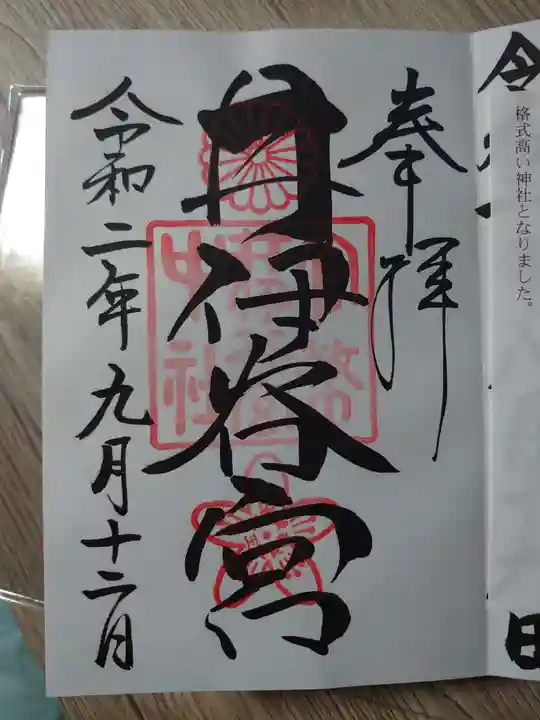 格式高い神社となりました。
奉拝
井伊谷宮
令和二年九月十二日